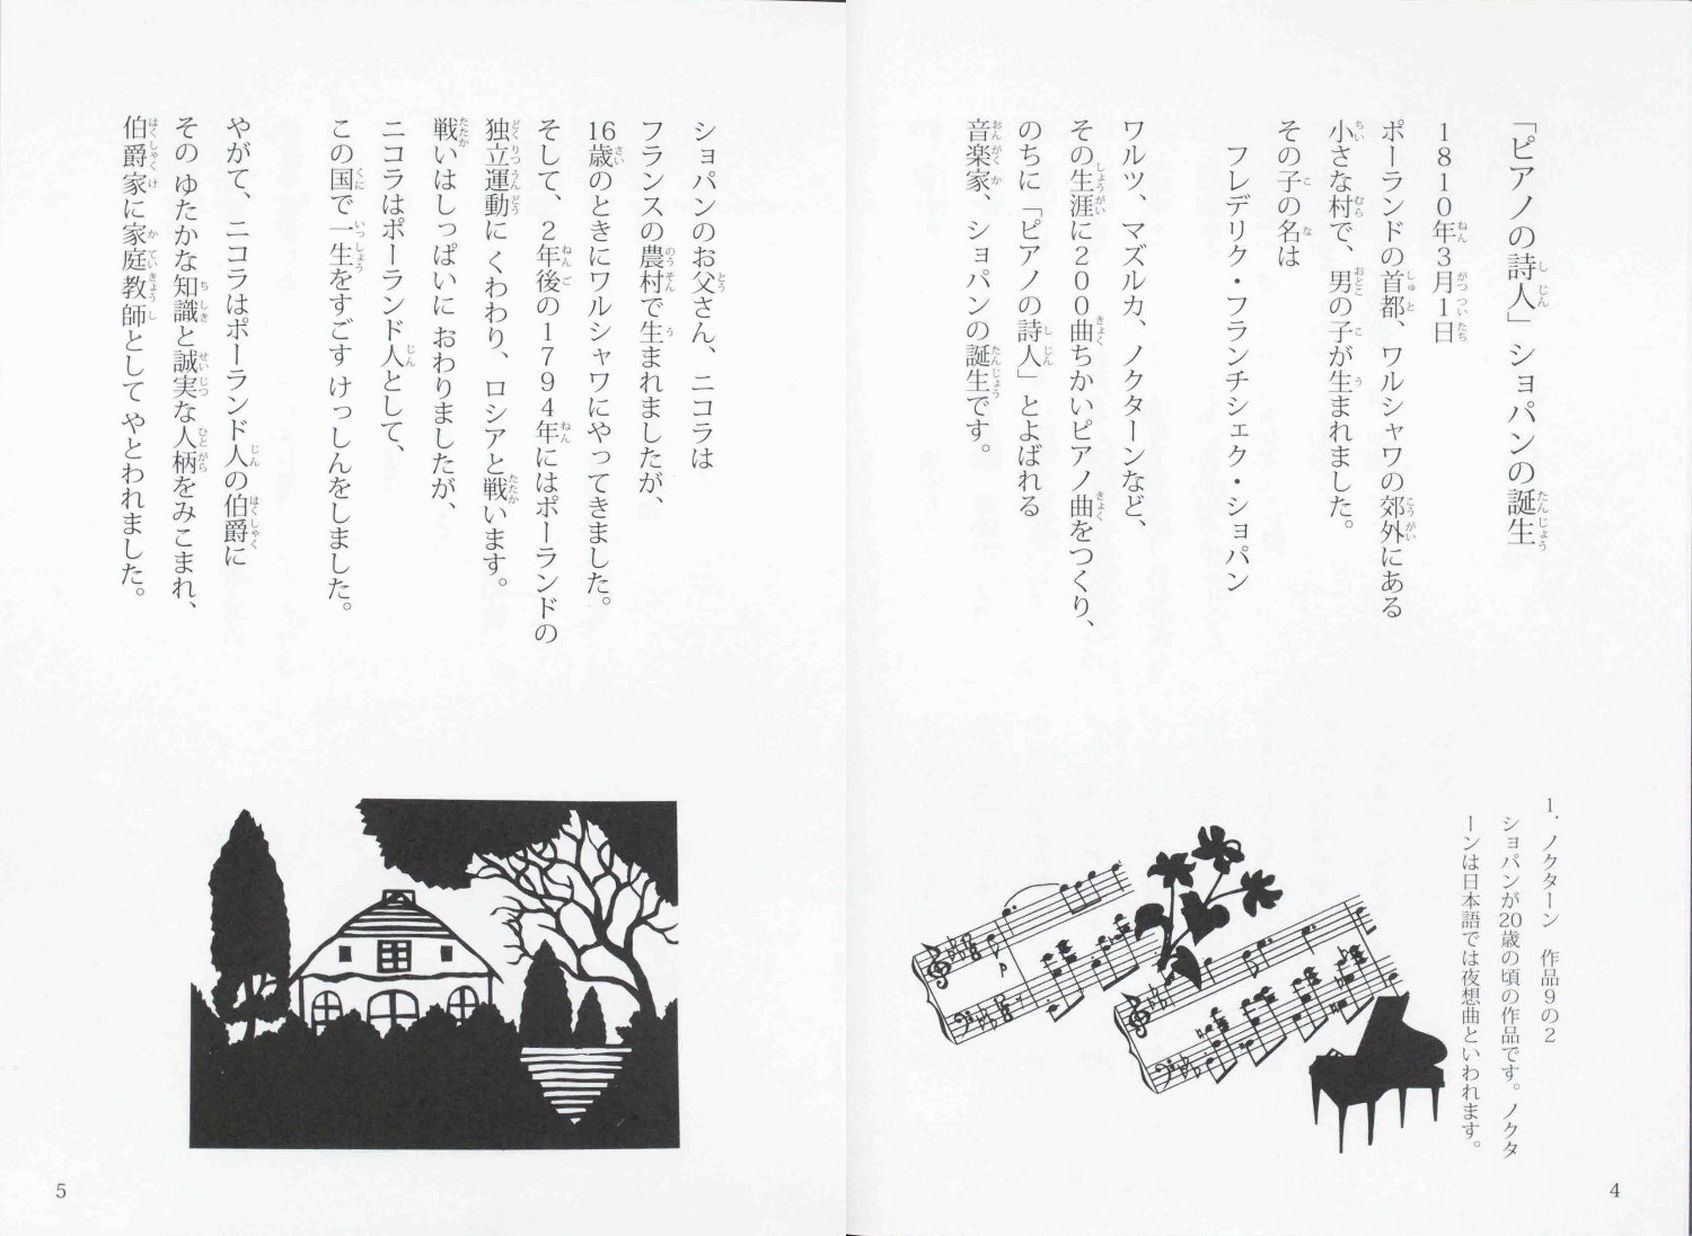 「ピアノの詩人」ショパンの誕生
1810年3月1日
ポーランドの首都、ワルシャワの郊外にある
小さな村で、男の子が生まれました。
その子の名は
フレデリク・フランチシェク・ショパン
ワルツ、マズルカ、ノクターンなど、
その生涯に200曲ちかいピアノ曲をつくり、
のちに「ピアノの詩人」とよばれる
音楽家、ショパンの誕生です。
1. ノクターン 作品9の2
ショパンが20歳の頃の作品です。ノクタ
ーンは日本語では夜想曲といわれます。
4
ショパンのお父さん、ニコラは
フランスの農村で生まれましたが、
16歳のときにワルシャワにやってきました。
そして、2年後の1794年にはポーランドの
独立運動に くわわり、ロシアと戦います。
戦いはしっぱいに おわりましたが、
ニコラはポーランド人として、
この国で一生をすごす けっしんをしました。
やがて、ニコラはポーランド人の伯爵に
その ゆたかな知識と誠実な人柄をみこまれ、
伯爵家に家庭教師として やとわれました。
5